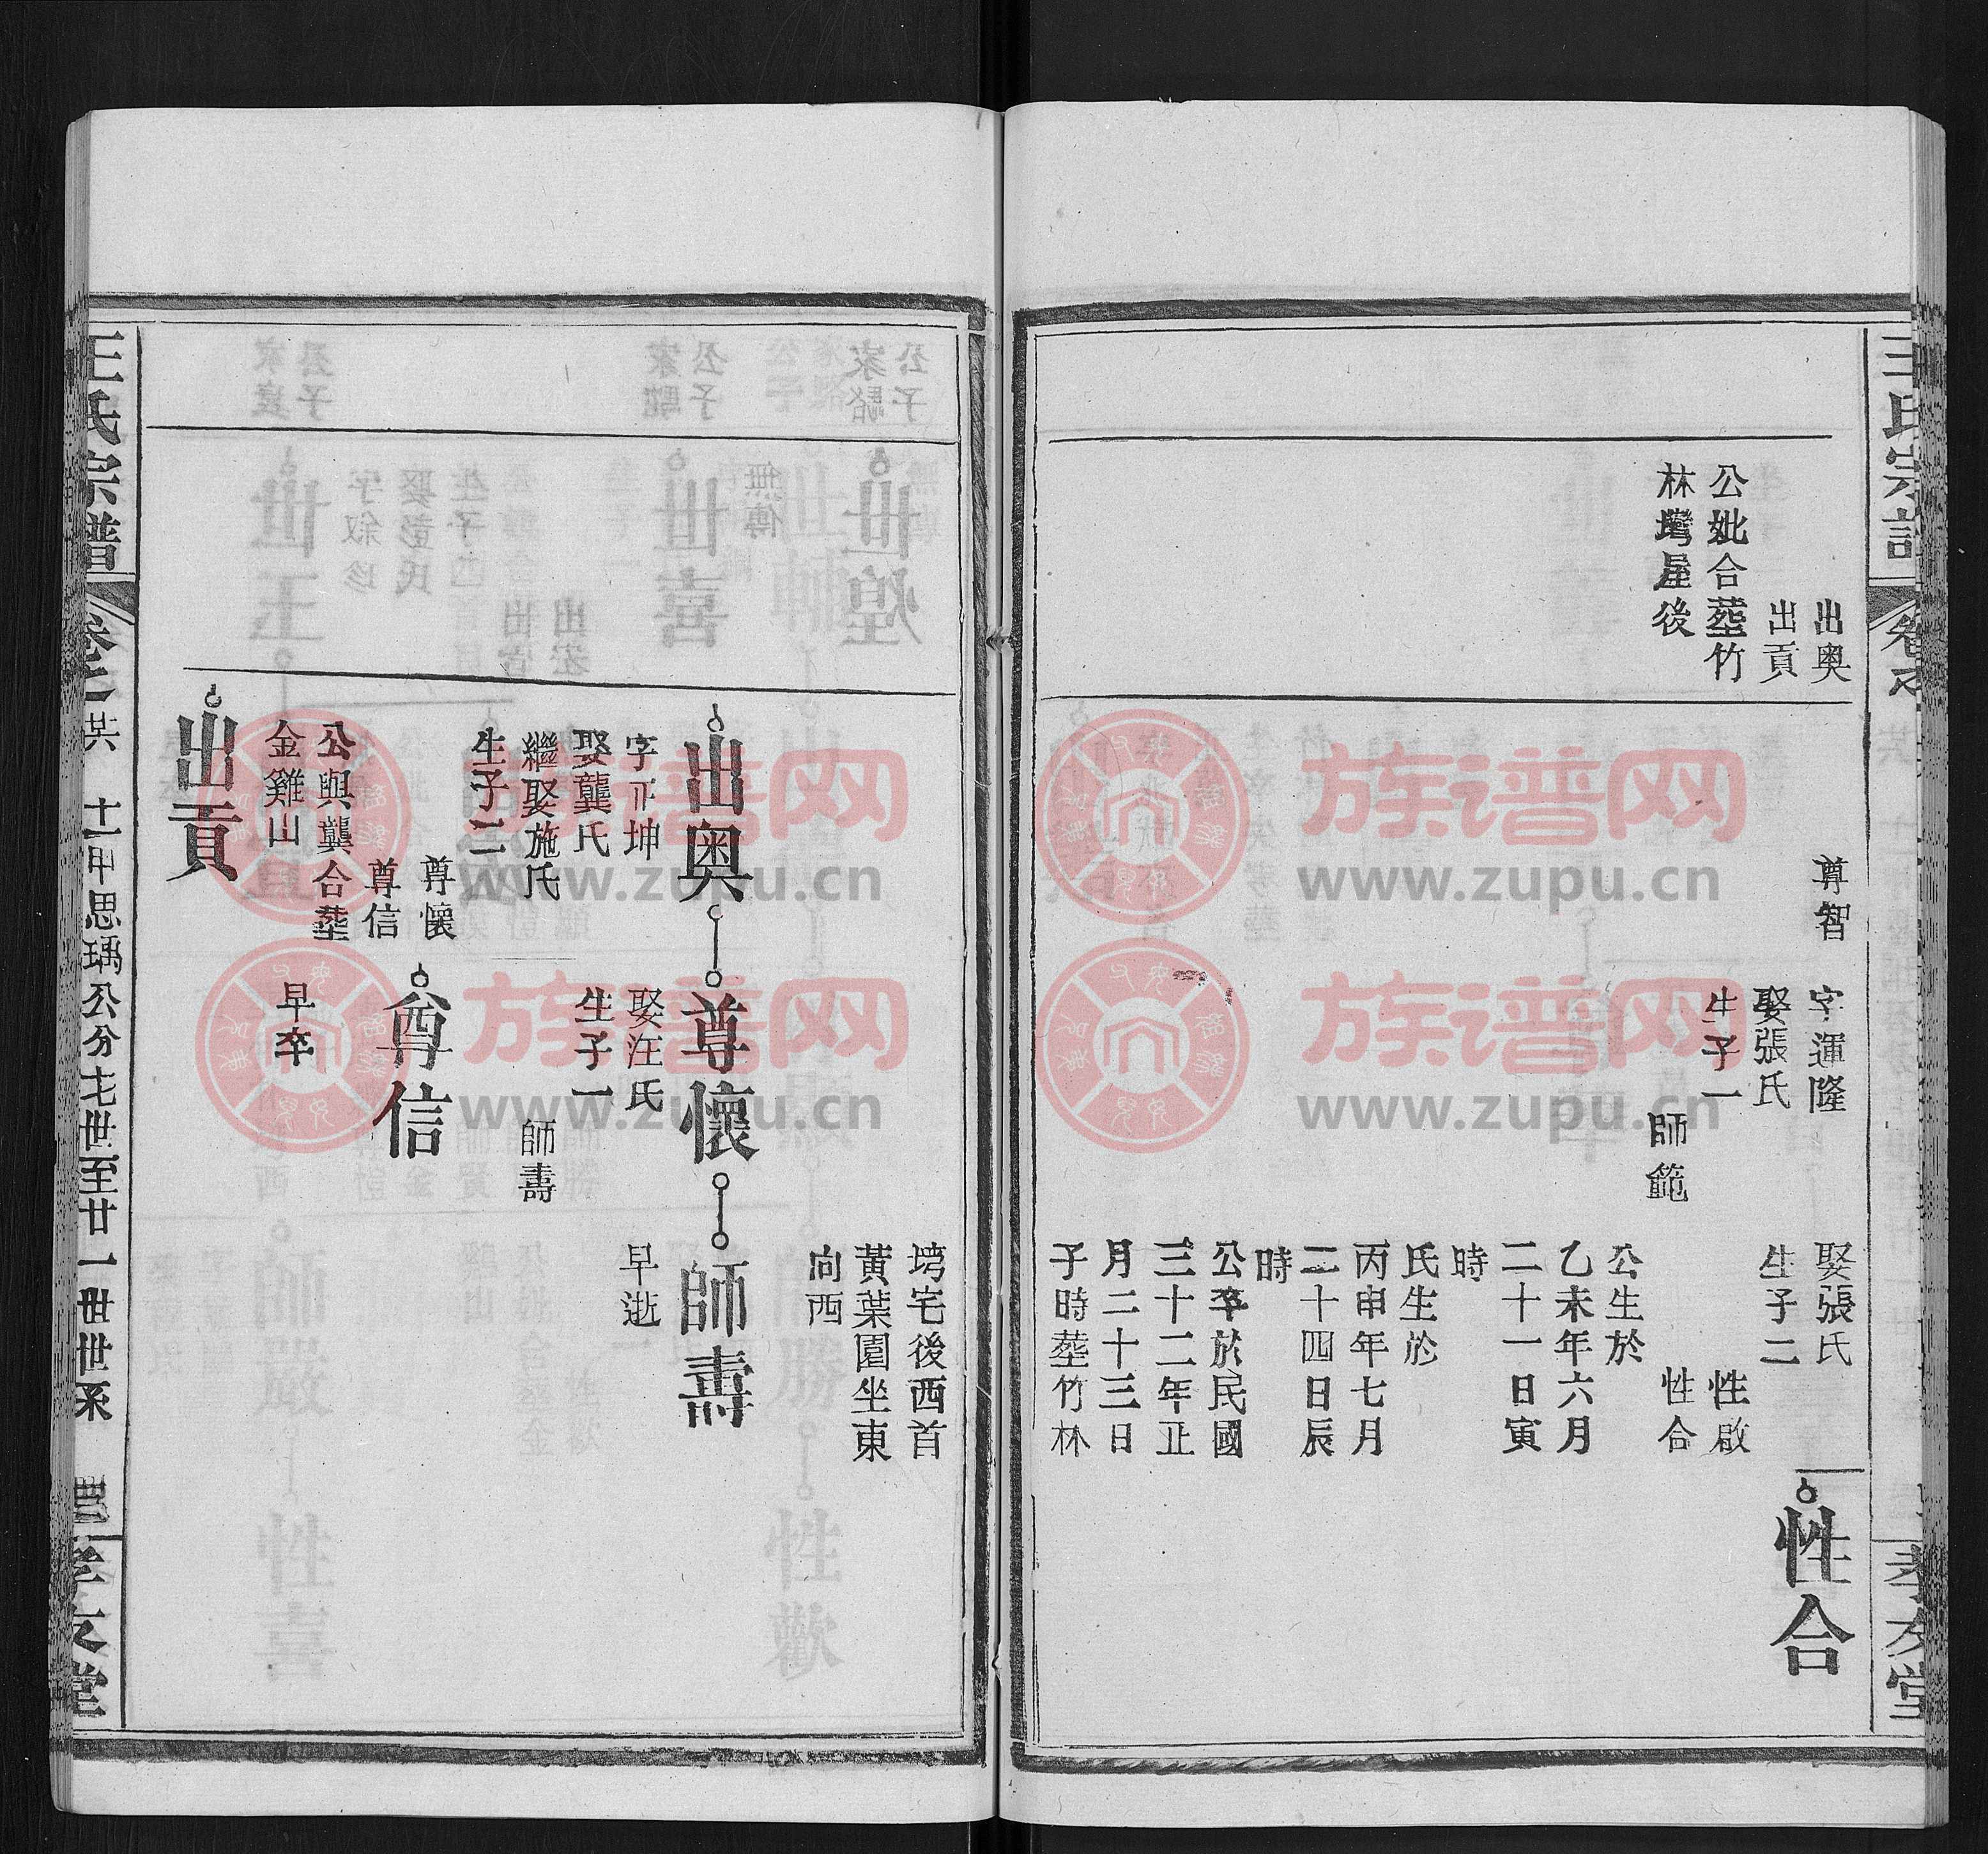 王氏宗譜
孝友堂
出奧
出貢
公妣合塟竹
林塆屋後
尊智
字運隆
娶張氏
生子一
師範
娶張氏
生子二
性啟
性合
公生於
乙未年六月
二十一日寅
時
氏生於
丙申年七月
二十四日辰
時
公卒於民國
三十二年正
月二十三日
子時塟竹林
性合
塆宅後西首
黃葉園坐東
向西
出奧
字丕坤
娶龔氏
繼娶施氏
生子二
尊懷
尊信
公與龔合塟
金雞山
出貢
尊懷
娶汪氏
生子一
師壽
尊信
早卒
師壽
早逝
王氏宗譜
十一甲思瑀公分
世至廿一世世系
孝友堂
族谱网
www.zupu.cn
族谱网
www.zupu.cn
族谱网
www.zupu.cn
族谱网
www.zupu.cn